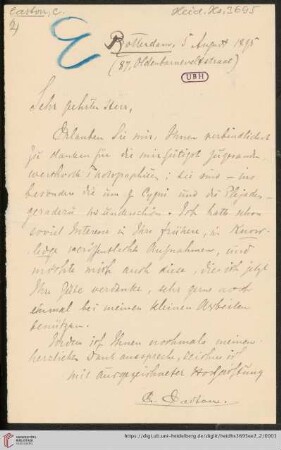 Easton, C.
Heid. Hs. 3695
2
E
Rotterdam, 5 August 1895
(87, Oldenbarneveltstraat)
UBH
Sehr geehrter Herr,
Erlauben Sie mir, Ihnen verbindlichst
zu danken für die mir gütigst zugesandten
die mir
besonders die um γ Cygni und die Plejaden
geradezu wunderschön. Ich hatte schon
soviel Interesse in den früher, in Know-
ledge veröffentlichten Aufnahmen, und
möchte mich auch diese, die ich jetzt
Ihr Güte verdanke, sehr gern noch
einmal bei meinen kleinen Arbeiten
benützen.
Indem ich Ihnen nochmals meinen
herzlichen Dank ausspreche, zeichne ich
mit ausgezeichneter Hochachtung
C. Easton.
UNIVERSITÄTS-
BIBLIOTHEK
HEIDELBERG